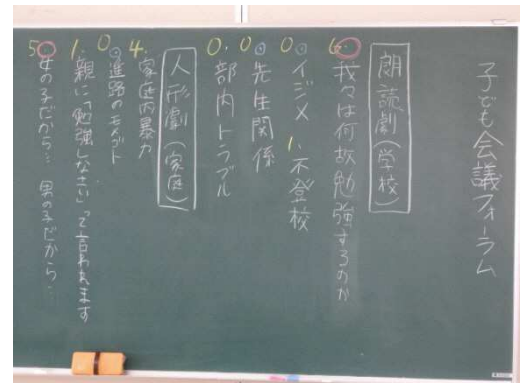 子ども会議フォーラム
朗読劇(学校)
6. 我々は何故勉強するのか
0. イジメ 1. 不登校
0. 先生関係
0. 部内トラブル
人形劇(家庭)
4. 家庭内暴力
0. 進路のモメゴト
1. 親に「勉強しなさい」って言われます
5. 女の子だから… 男の子だから…